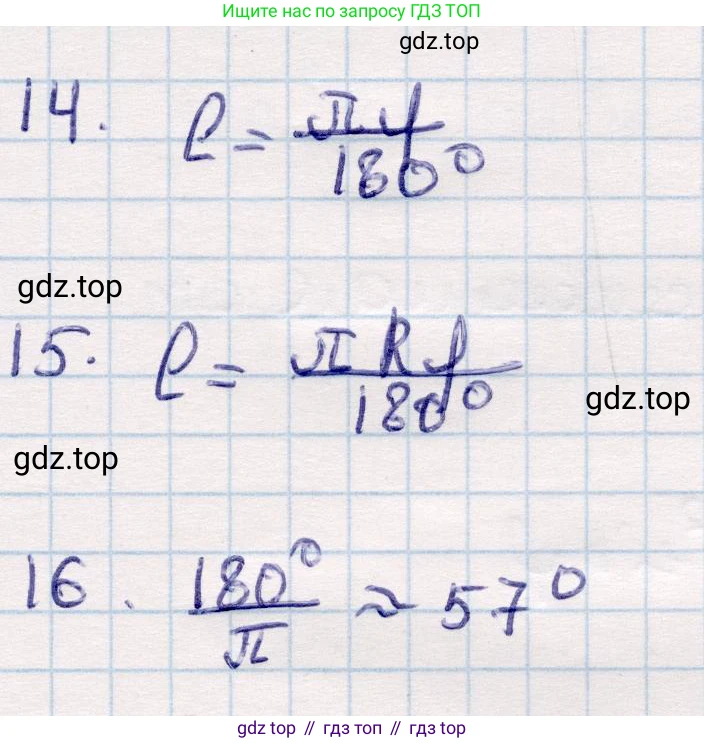 Ищите нас по запросу ГДЗ ТОП
gdz.top
14. l = πφ/180°
gdz.top
15. l = πRφ/180°
gdz.top
gdz.top
16. 180°/π ≈ 57°
gdz top // гдз топ // gdz top